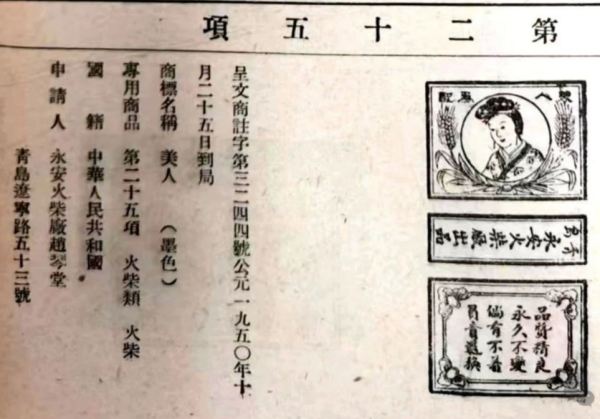 第二十五項
美人
商標
青島永安火柴廠出品
品質精良
永久不變
倘有不着
負責退換
呈文商註字第三二四四號公元一九五〇年十
月二十五日到局
商標名稱 美人 （墨色）
專用商品 第二十五項 火柴類 火柴
國籍 中華人民共和國
申請人 永安火柴廠趙琴堂
青島遼寧路五十三號